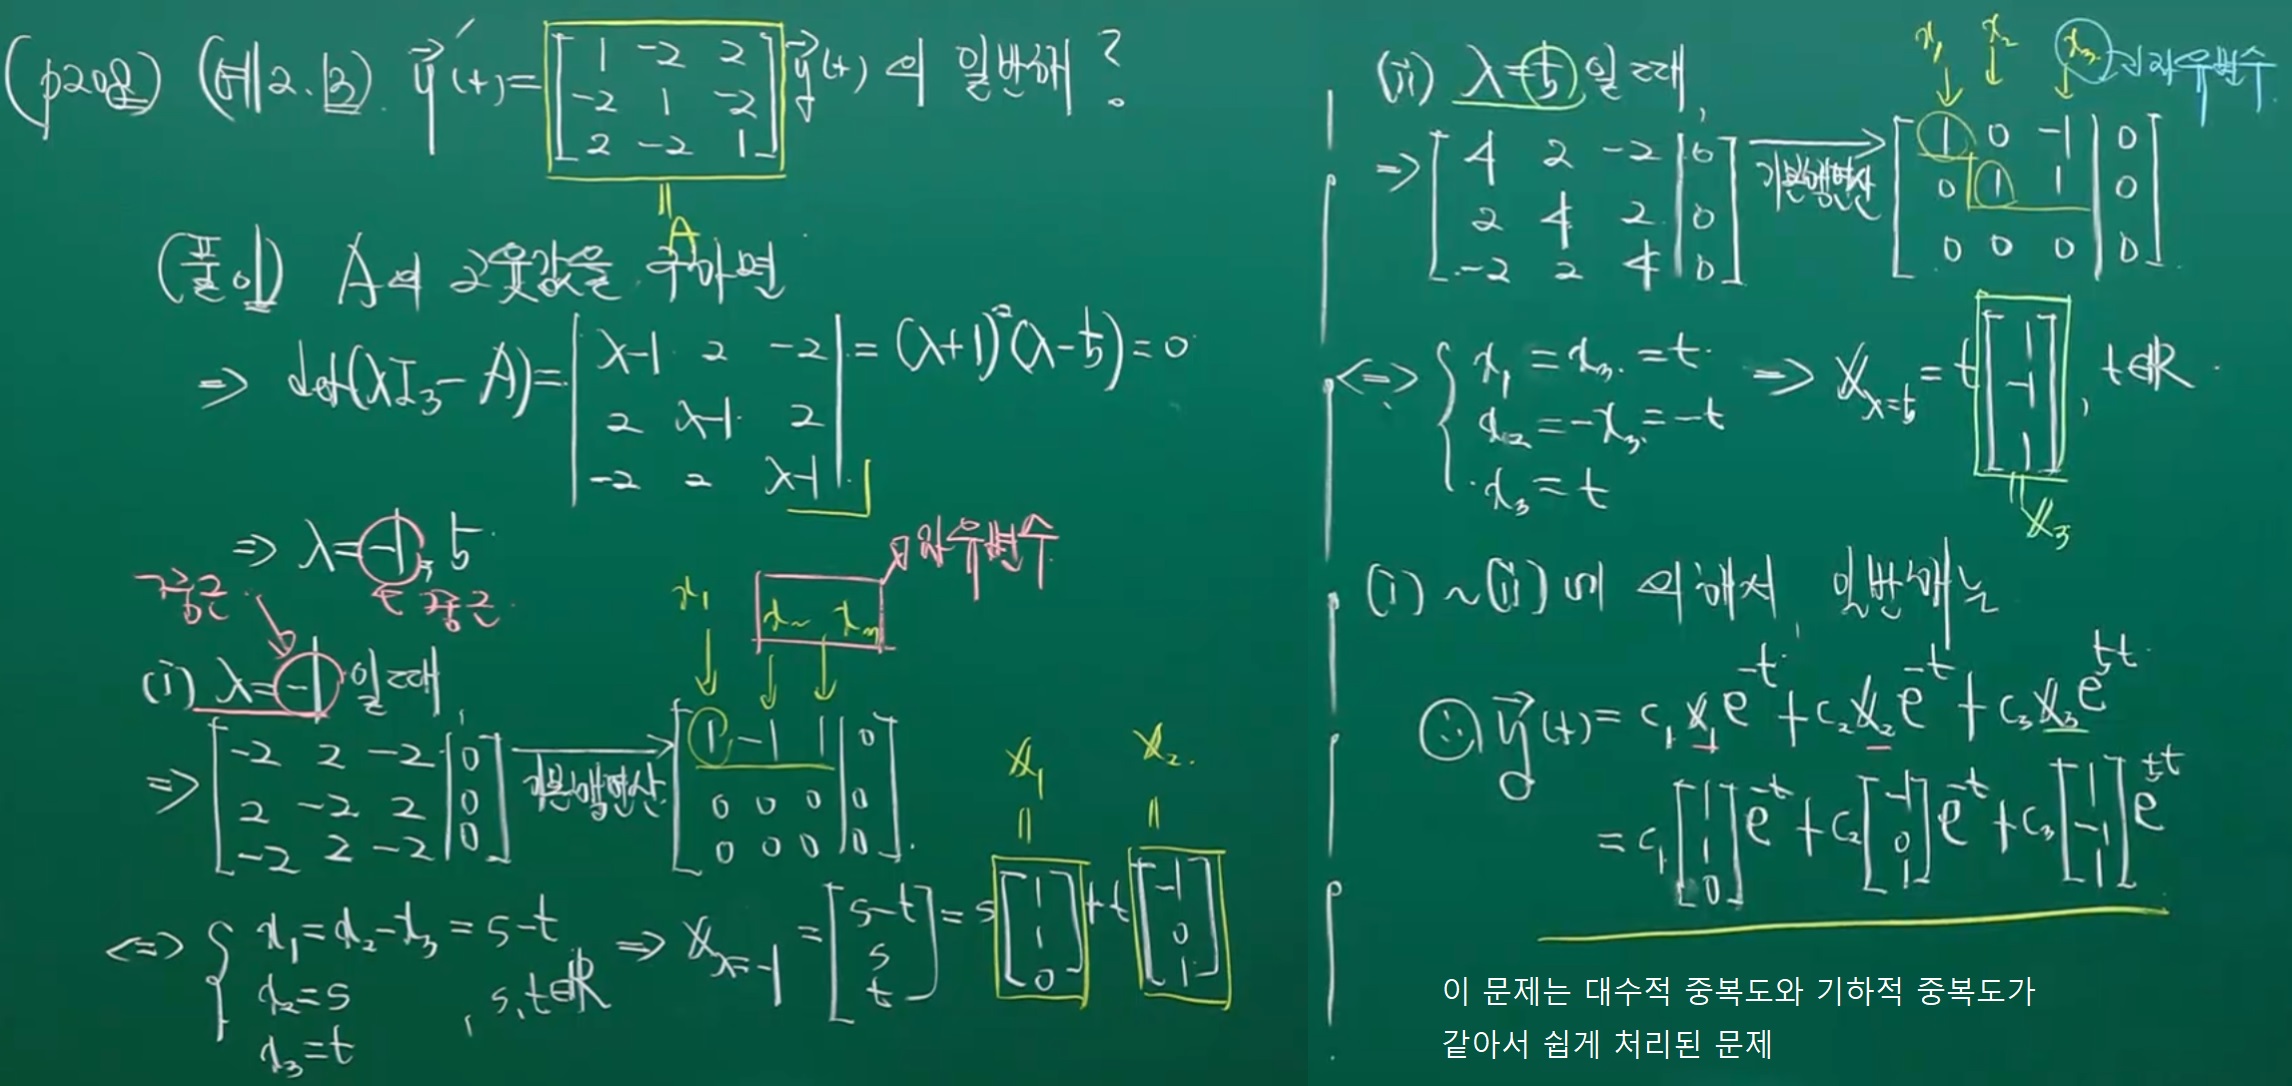 (p208) (예2.13). y⃗′(t)= [1 -2 2; -2 1 -2; 2 -2 1] y⃗(t) 의 일반해?
= A
(풀이) A의 고윳값을 구하면
=> det(λI₃-A)= |λ-1 2 -2; 2 λ-1 2; -2 2 λ-1| = (λ+1)²(λ-5)=0
=> λ=-1, 5.
중근 ← 중근
(i) λ=-1 일 때,
x₁ x₂ x₃ 자유변수
=> [-2 2 -2 | 0; 2 -2 2 | 0; -2 2 -2 | 0] 기본행연산 → [1 -1 1 | 0; 0 0 0 | 0; 0 0 0 | 0].
<=> { x₁=x₂-x₃=s-t
x₂=s , s,t∈ℝ
x₃=t
=> 𝕏λ=-1 = [s-t; s; t] = s[1; 1; 0] + t[-1; 0; 1]
𝕏₁ 𝕏₂
(ii) λ=5 일 때,
x₁ x₂ x₃ 자유변수
=> [4 2 -2 | 0; 2 4 2 | 0; -2 2 4 | 0] 기본행연산 → [1 0 -1 | 0; 0 1 1 | 0; 0 0 0 | 0].
<=> { x₁=x₃=t
x₂=-x₃=-t
x₃=t
=> 𝕏λ=5 = t[1; -1; 1], t∈ℝ.
= 𝕏₃
(i)~(ii)에 의해서, 일반해는
∴ y⃗(t)= c₁𝕏₁e^-t + c₂𝕏₂e^-t + c₃𝕏₃e^5t
= c₁[1; 1; 0]e^-t + c₂[-1; 0; 1]e^-t + c₃[1; -1; 1]e^5t
이 문제는 대수적 중복도와 기하적 중복도가
같아서 쉽게 처리된 문제